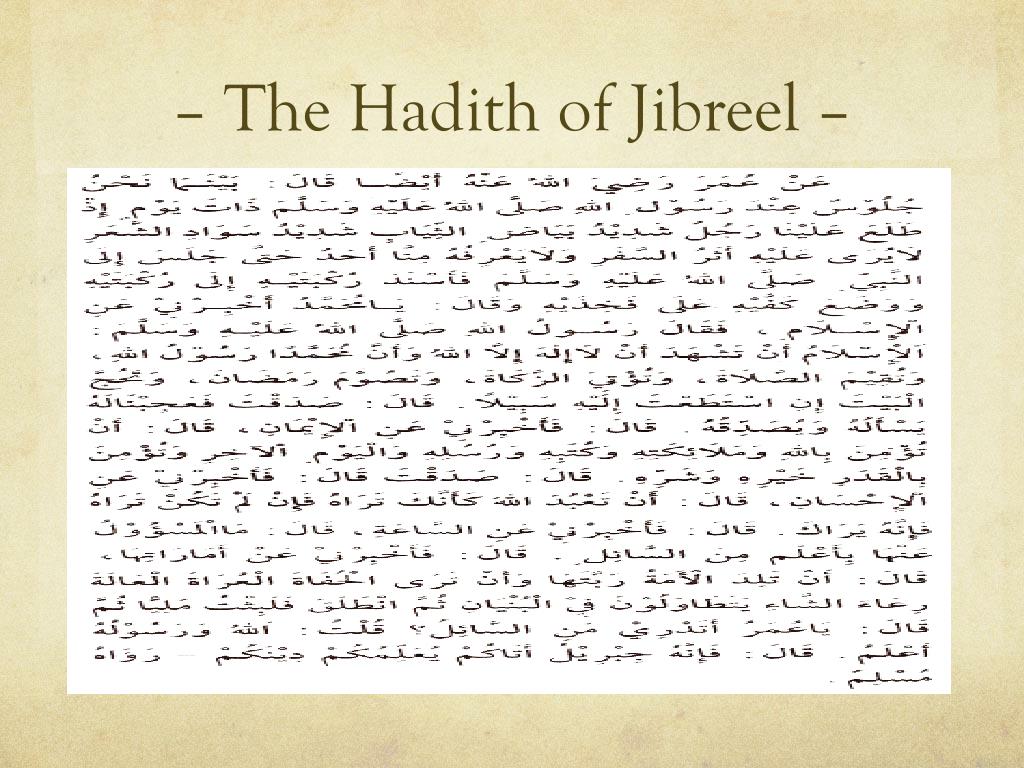 – The Hadith of Jibreel –
عَنْ عُمَرَ رَضِيَ اللهُ عَنْهُ أَيْضًا قَالَ : بَيْنَمَا نَحْنُ
جُلُوْسٌ عِنْدَ رَسُوْلِ اللهِ صَلَّى اللهُ عَلَيْهِ وَسَلَّمَ ذَاتَ يَوْمٍ إِذْ
طَلَعَ عَلَيْنَا رَجُلٌ شَدِيْدُ بَيَاضِ الثِّيَابِ شَدِيْدُ سَوَادِ الشَّعَرِ
لَايُرَى عَلَيْهِ أَثَرُ السَّفَرِ وَلَايَعْرِفُهُ مِنَّا أَحَدٌ حَتىَّ جَلَسَ إِلَى
النَّبِيِّ صَلَّى اللهُ عَلَيْهِ وَسَلَّمَ فَأَسْنَدَ رُكْبَتَيْهِ إِلَى رُكْبَتَيْهِ
وَوَضَعَ كَفَّيْهِ عَلَى فَخِذَيْهِ وَقَالَ : يَامُحَمَّدُ أَخْبِرْنِيْ عَنِ
الْإِسْلَامِ ، فَقَالَ رَسُوْلُ اللهِ صَلَّى اللهُ عَلَيْهِ وَسَلَّمَ :
اَلْإِسْلَامُ أَنْ تَشْهَدَ أَنْ لَاإِلَهَ إِلَّا اللهُ وَأَنَّ مُحَمَّدًا رَسُوْلُ اللهِ ،
وَتُقِيْمَ الصَّلَاةَ ، وَتُؤْتِيَ الزَّكَاةَ ، وَتَصُوْمَ رَمَضَانَ ، وَتَحُجَّ
الْبَيْتَ إِنِ اسْتَطَعْتَ إِلَيْهِ سَبِيْلًا . قَالَ : صَدَقْتَ فَعَجِبْنَالَهُ
يَسْأَلُهُ وَيُصَدِّقُهُ . قَالَ : فَأَخْبِرْنِيْ عَنِ الْإِيْمَانِ ، قَالَ : أَنْ
تُؤْمِنَ بِاللهِ وَمَلَائِكَتِهِ وَكُتُبِهِ وَرُسُلِهِ وَالْيَوْمِ الْآخِرِ وَتُؤْمِنَ
بِالْقَدَرِ خَيْرِهِ وَشَرِّهِ . قَالَ : صَدَقْتَ قَالَ : فَأَخْبِرْنِيْ عَنِ
الْإِحْسَانِ ، قَالَ : أَنْ تَعْبُدَ اللهَ كَأَنَّكَ تَرَاهُ فَإِنْ لَمْ تَكُنْ تَرَاهُ
فَإِنَّهُ يَرَاكَ . قَالَ : فَأَخْبِرْنِيْ عَنِ السَّاعَةِ ، قَالَ : مَاالْمَسْؤُوْلُ
عَنْهَا بِأَعْلَمَ مِنَ السَّائِلِ . قَالَ : فَأَخْبِرْنِيْ عَنْ أَمَارَاتِهَا ،
قَالَ : أَنْ تَلِدَ الْأَمَةُ رَبَّتَهَا وَأَنْ تَرَى الْحُفَاةَ الْعُرَاةَ الْعَالَةَ
رِعَاءَ الشَّاءِ يَتَطَاوَلُوْنَ فِيْ الْبُنْيَانِ ثُمَّ انْطَلَقَ فَلَبِثْتُ مَلِيًّا ثُمَّ
قَالَ : يَاعُمَرُ أَتَدْرِيْ مَنِ السَّائِلُ؟ قُلْتُ : اَللهُ وَرَسُوْلُهُ
أَعْلَمُ . قَالَ : فَإِنَّهُ جِبْرِيْلُ أَتَاكُمْ يُعَلِّمُكُمْ دِيْنَكُمْ – رَوَاهُ
مُسْلِمٌ .